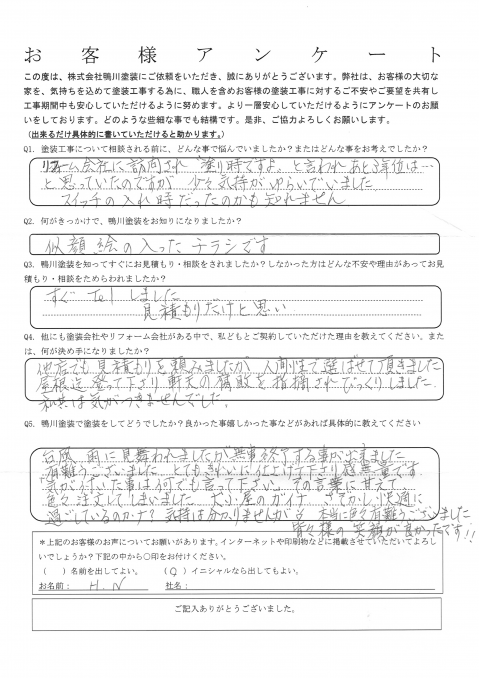 お客様アンケート
この度は、株式会社鴨川塗装にご依頼をいただき、誠にありがとうございます。弊社は、お客様の大切な
家を、気持ちを込めて塗装工事する為に、職人を含めお客様の塗装工事に対するご不安やご要望を共有し
工事期間中も安心していただけるように努めます。より一層安心していただけるようにアンケートのお願
いをしております。どのような些細な事でも結構です。是非、ご協力よろしくお願いします。
(出来るだけ具体的に書いていただけると助かります。)
Q1. 塗装工事について相談される前に、どんな事で悩んでいましたか?またはどんな事をお考えでしたか?
リフォーム会社に訪問され "塗り時ですよ" と言われ あと3年位は…
と思っていたのですが 少々気持がゆらいでいました
スイッチの入れ時だったのかも知れません
Q2. 何がきっかけで、鴨川塗装をお知りになりましたか?
似顔絵の入ったチラシです
Q3. 鴨川塗装を知ってすぐにお見積もり・相談をされましたか?しなかった方はどんな不安や理由があってお見
積もり・相談をためらわれましたか?
すぐ Tel しました
見積もりだけと思い
Q4. 他にも塗装会社やリフォーム会社がある中で、私どもとご契約していただけた理由を教えてください。また
は、何が決め手になりましたか?
他店でも見積もりを頼みましたが 人間性で選ばせて頂きました
屋根迄登って下さり 軒天の腐敗を指摘されびっくりしました.
私共は気がつきませんでした.
Q5. 鴨川塗装で塗装をしてどうでしたか?良かった事嬉しかった事などがあれば具体的に教えてください
台風、雨に見舞われましたが無事終了する事が出来ました
有難うございました とてもきれいに仕上げて下さり感無量です
"気が付いた事は何でも言って下さい" その言葉に甘えて
色々注文してしまいました 犬小屋の 快適に
過ごしているのかナ? 気持は分かりませんが 本当に色々有難うございました
皆々様の笑顔が良かったです!!
*上記のお客様のお声についてお願いがあります。インターネットや印刷物などに掲載させていただいてよろし
いでしょうか?下記の中から○印をお付けください。
( )名前を出してよい。 (○)イニシャルなら出してもよい。
お名前: H.N 社名:
ご記入ありがとうございました。